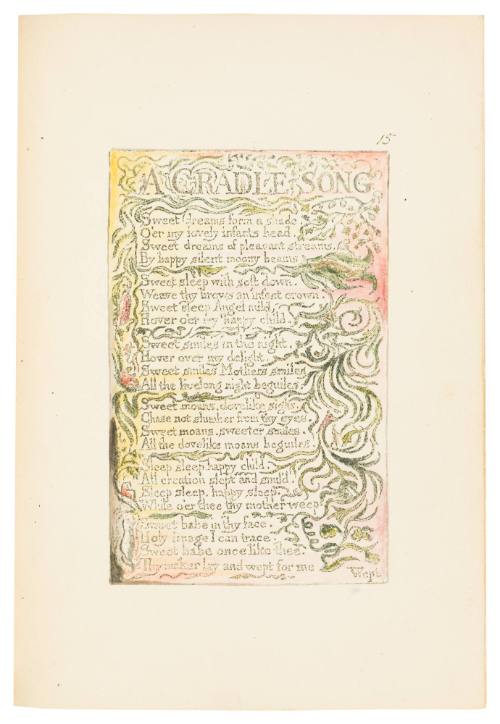 15
A CRADLE SONG
Sweet dreams form a shade
O'er my lovely infants head.
Sweet dreams of pleasant streams,
By happy silent moony beams
Sweet sleep with soft down,
Weave thy brows an infant crown.
Sweet sleep Angel mild,
Hover o'er my happy child.
Sweet smiles in the night,
Hover over my delight.
Sweet smiles Mothers smiles
All the livelong night beguiles.
Sweet moans, dovelike sighs,
Chase not slumber from thy eyes,
Sweet moans, sweeter smiles,
All the dovelike moans beguiles.
Sleep sleep happy child.
All creation slept and smil'd.
Sleep sleep, happy sleep,
While o'er thee thy mother weep
Sweet babe in thy face,
Holy image I can trace.
Sweet babe once like thee,
Thy maker lay and wept for me
Wept